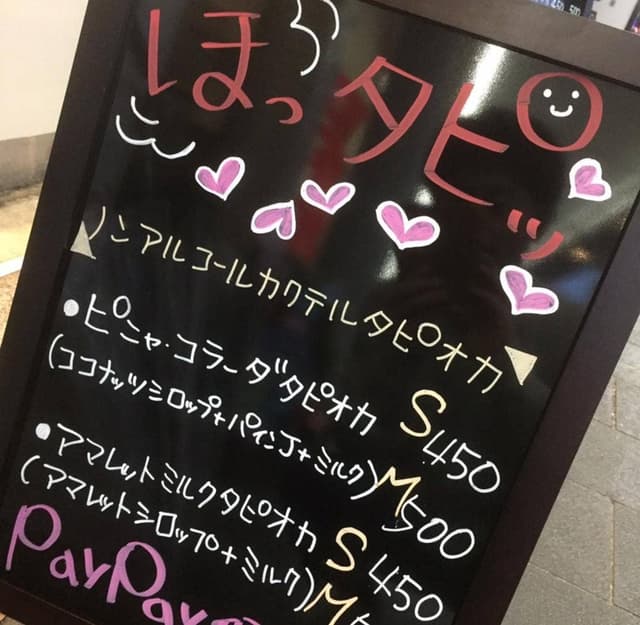 ほっタピッ
ノンアルコールカクテルタピオカ
•ピニャ・コラーダタピオカ S 450
(ココナッツシロップ+パインJ+ミルク) M 500
•アマレットミルクタピオカ S 450
(アマレットシロップ+ミルク) M
PayPay